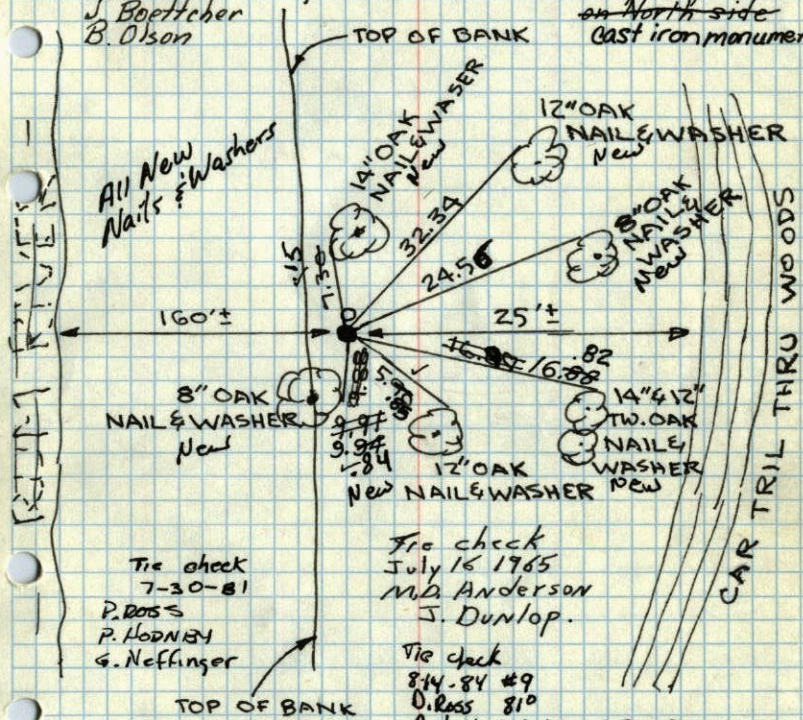 J. Boettcher
B. Olson
on North side
cast iron monumen
TOP OF BANK
All New
Nails & Washers
14" OAK
NAIL & WASER
New
12" OAK
NAIL & WASHER
New
8" OAK
NAIL &
WASHER
New
.15
7.30
32.34
24.56
160'±
25'±
16.88
.82
8" OAK
NAIL & WASHER
New
9.88
9.91
9.94
.84
New
12" OAK
NAIL & WASHER
14" & 12"
TW. OAK
NAIL &
WASHER
New
CAR TRIL THRU WOODS
RIVER
Tie check
7-30-81
D. ROSS
P. HODNBY
G. Neffinger
Tie check
July 16 1965
M.D. Anderson
J. Dunlop.
Tie check
8-14-84 #9
D. Ross 81°
TOP OF BANK